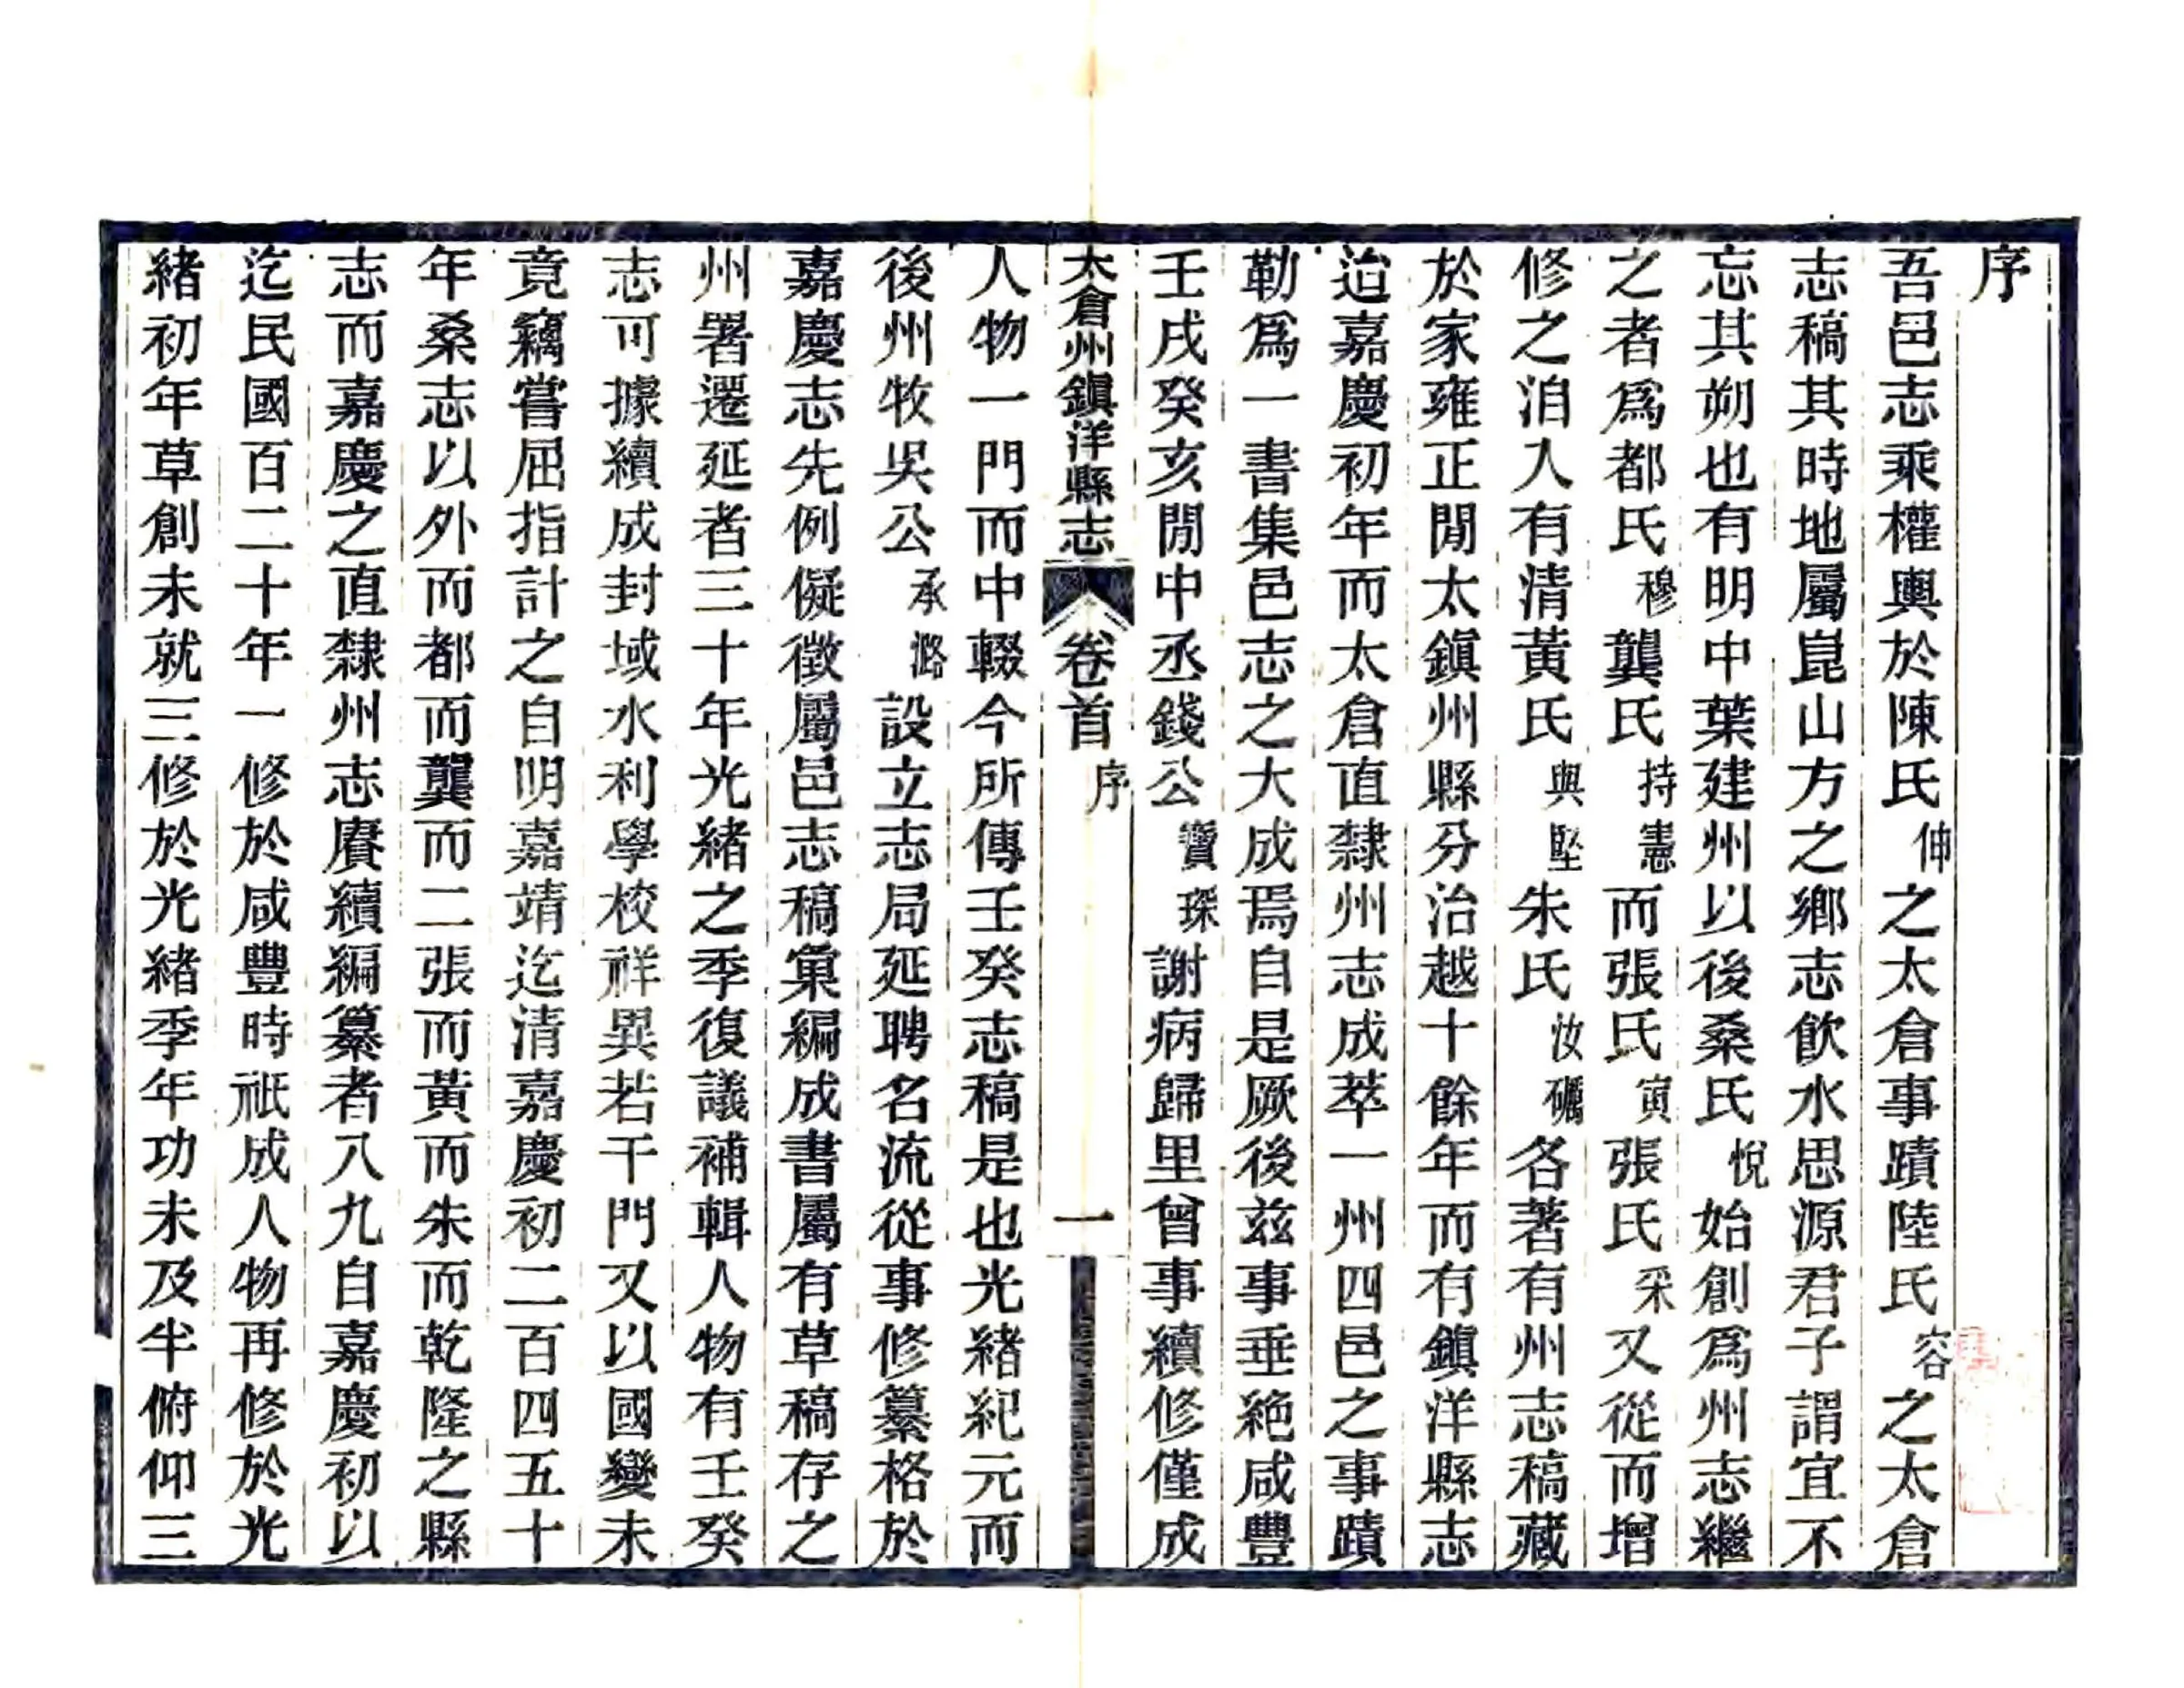 序
吾邑志乘權輿於陳氏伸之太倉事蹟陸氏容之太倉
志稿其時地屬崑山方之鄉志飲水思源君子謂宜不
忘其朔也有明中葉建州以後桑氏悅始創爲州志繼
之者爲都氏穆龔氏持憲而張氏寅張氏采又從而增
修之洎入有清黃氏與堅朱氏汝礪各著有州志稿藏
於家雍正閒太鎭州縣分治越十餘年而有鎭洋縣志
迨嘉慶初年而太倉直隸州志成萃一州四邑之事蹟
勒爲一書集邑志之大成焉自是厥後兹事垂絶咸豐
壬戌癸亥閒中丞錢公寶琛謝病歸里曾事續修僅成
太倉州鎭洋縣志 卷首 序 一
人物一門而中輟今所傳壬癸志稿是也光緒紀元而
後州牧吳公承潞設立志局延聘名流從事修纂格於
嘉慶志先例儗徵屬邑志稿彙編成書屬有草稿存之
州署遷延者三十年光緒之季復議補輯人物有壬癸
志可據續成封域水利學校祥異若干門又以國變未
竟竊嘗屈指計之自明嘉靖迄清嘉慶初二百四五十
年桑志以外而都而龔而二張而黃而朱而乾隆之縣
志而嘉慶之直隸州志賡續編纂者八九自嘉慶初以
迄民國百二十年一修於咸豐時祇成人物再修於光
緒初年草創未就三修於光緒季年功未及半俯仰三